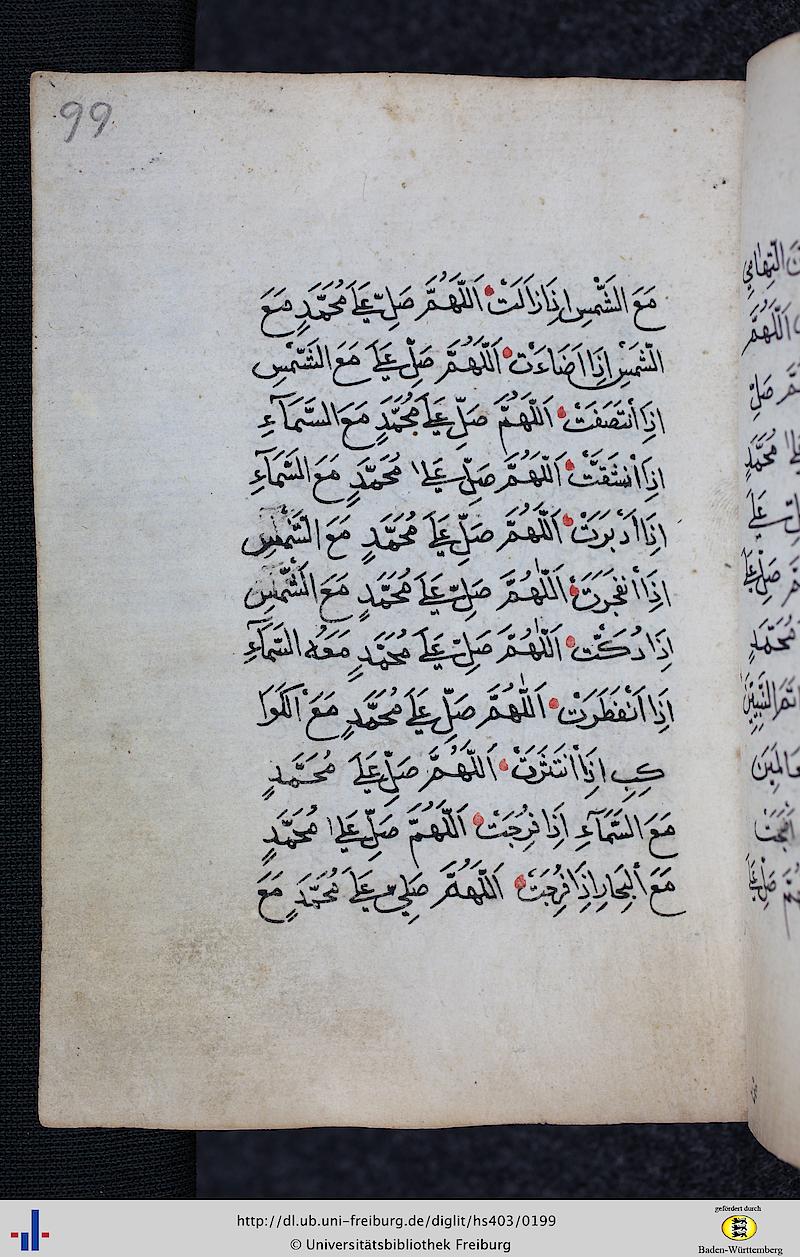 99
مَعَ الشَّمْسِ اِذَا زَالَتْ اَللّٰهُمَّ صَلِّ عَلَي مُحَمَّدٍ مَعَ
الشَّمْسِ اِذَا اَضَاءَتْ اَللّٰهُمَّ صَلِّ عَلَي مَعَ الشَّمْسِ
اِذَا اَنْتَصَفَتْ اَللّٰهُمَّ صَلِّ عَلَي مُحَمَّدٍ مَعَ السَّمَآءِ
اِذَا اَنْشَقَّتْ اَللّٰهُمَّ صَلِّ عَلَيا مُحَمَّدٍ مَعَ السَّمَآءِ
اِذَا اَدْبَرَتْ اَللّٰهُمَّ صَلِّ عَلَي مُحَمَّدٍ مَعَ الشَّمْسِ
اِذَا اَنْفَجَرَتْ اَللّٰهُمَّ صَلِّ عَلَي مُحَمَّدٍ مَعَ الشَّمْسِ
اِذَا دُكَّتْ اَللّٰهُمَّ صَلِّ عَلَي مُحَمَّدٍ مَعَهُ السَّمَآءِ
اِذَا اَنْفَطَرَتْ اَللّٰهُمَّ صَلِّ عَلَي مُحَمَّدٍ مَعَ الْكَوَا
كِبِ اِذَا اَنْتَثَرَتْ اَللّٰهُمَّ صَلِّ عَلَي مُحَمَّدٍ
مَعَ السَّمَآءِ اِذَا فُرِجَتْ اَللّٰهُمَّ صَلِّ عَلَيا مُحَمَّدٍ
مَعَ الْبِحَارِ اِذَا فُرِجَتْ اَللّٰهُمَّ صَلِّي عَلَي مُحَمَّدٍ مَعَ
التِّهَامِي
اَللّٰهُمَّ
صَلِّ
مُحَمَّدٍ
عَلَي
صَلِّ عَلَي
مُحَمَّدٍ
النَّبِيِّينَ
صَلِّ عَلَي
http://dl.ub.uni-freiburg.de/diglit/hs403/0199
© Universitätsbibliothek Freiburg
gefördert durch
Baden-Württemberg